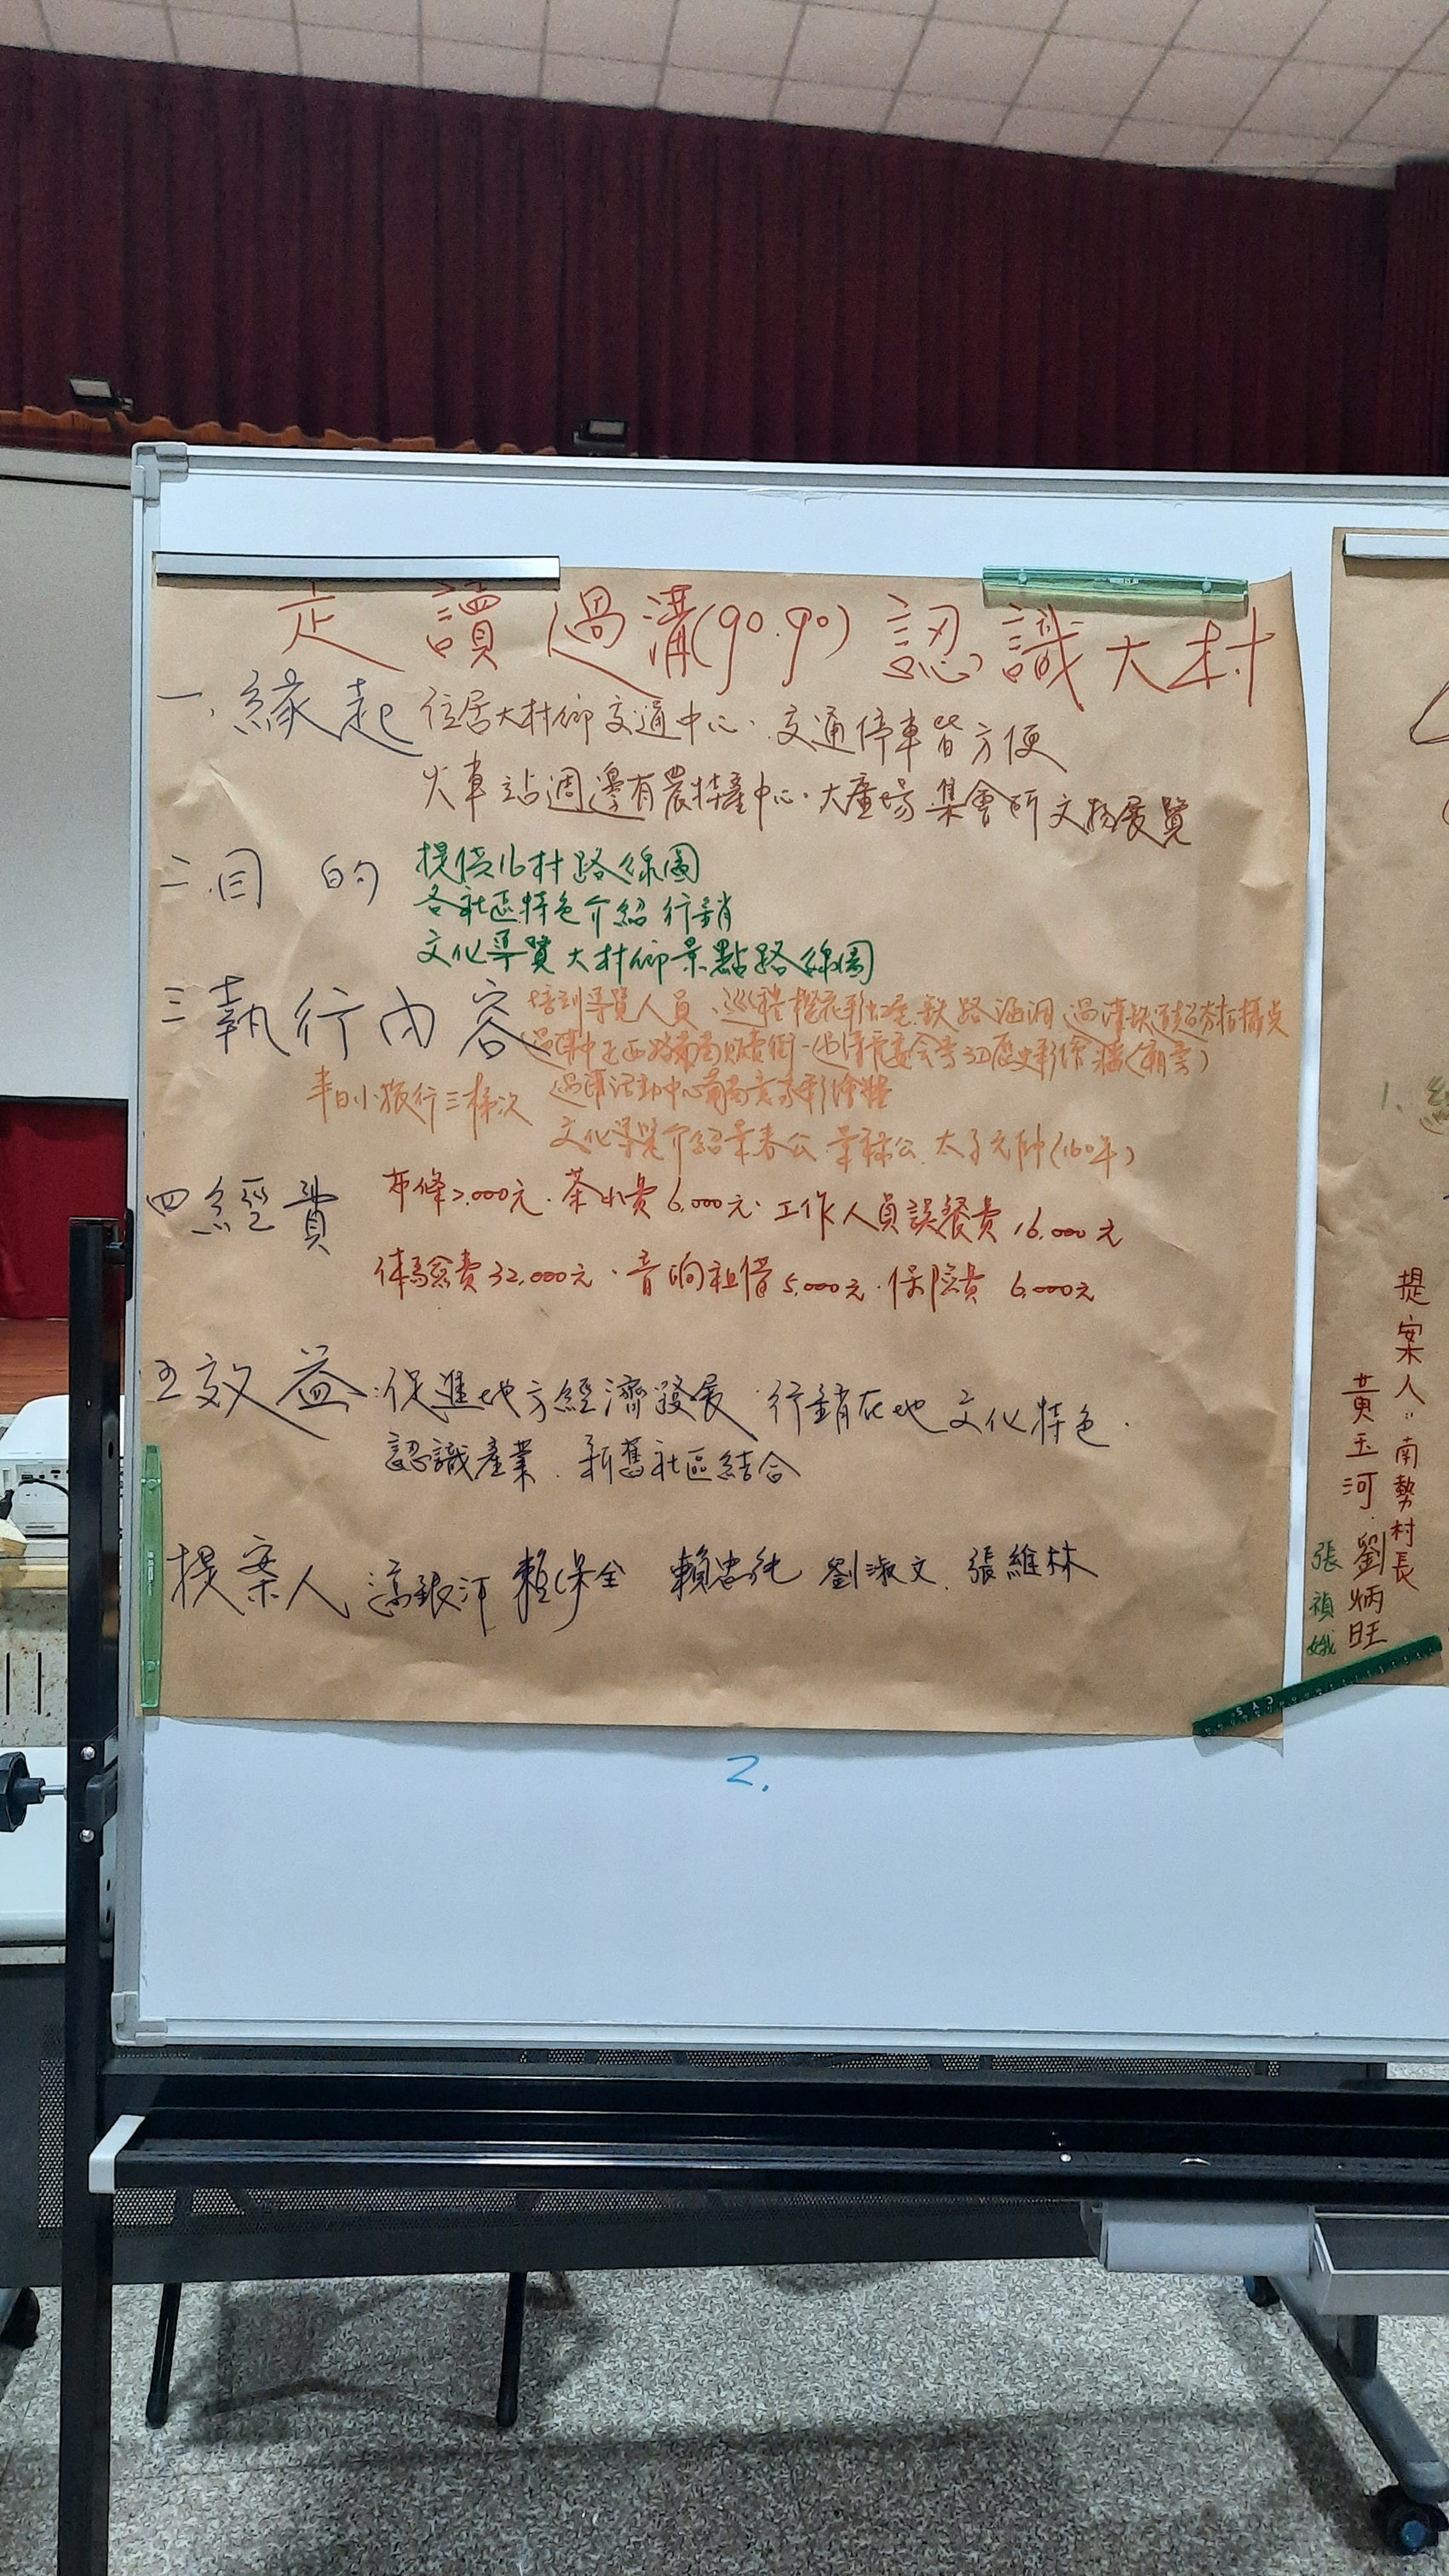 走讀過溝(go.go)認識大村
一.緣起 位居大村鄉交通中心.交通停車皆方便
火車站週邊有農特產中心.大廣場 集會所文物展覽
二.目的 提供16村路線圖
各社區特色介紹 行銷
文化導覽 大村鄉景點路線圖
三執行內容 培訓導覽人員、 鉄路涵洞
半日小旅行三梯次 過溝活動中心葡萄意象彩繪牆
文化導覽介紹 太子元帥(160年)
四經費 布條2,000元.茶水費6,000元.工作人員誤餐費16,000元
体驗費32,000元.音响租借5,000元.保險費 6,000元
五效益:促進地方經濟發展.行銷在地文化特色.
認識產業.新舊社區結合
提案人 賴保全 賴忠純 劉淑文.張維林
2.
提案人:南勢村長
黃玉河.劉炳旺
張禎娥
1.